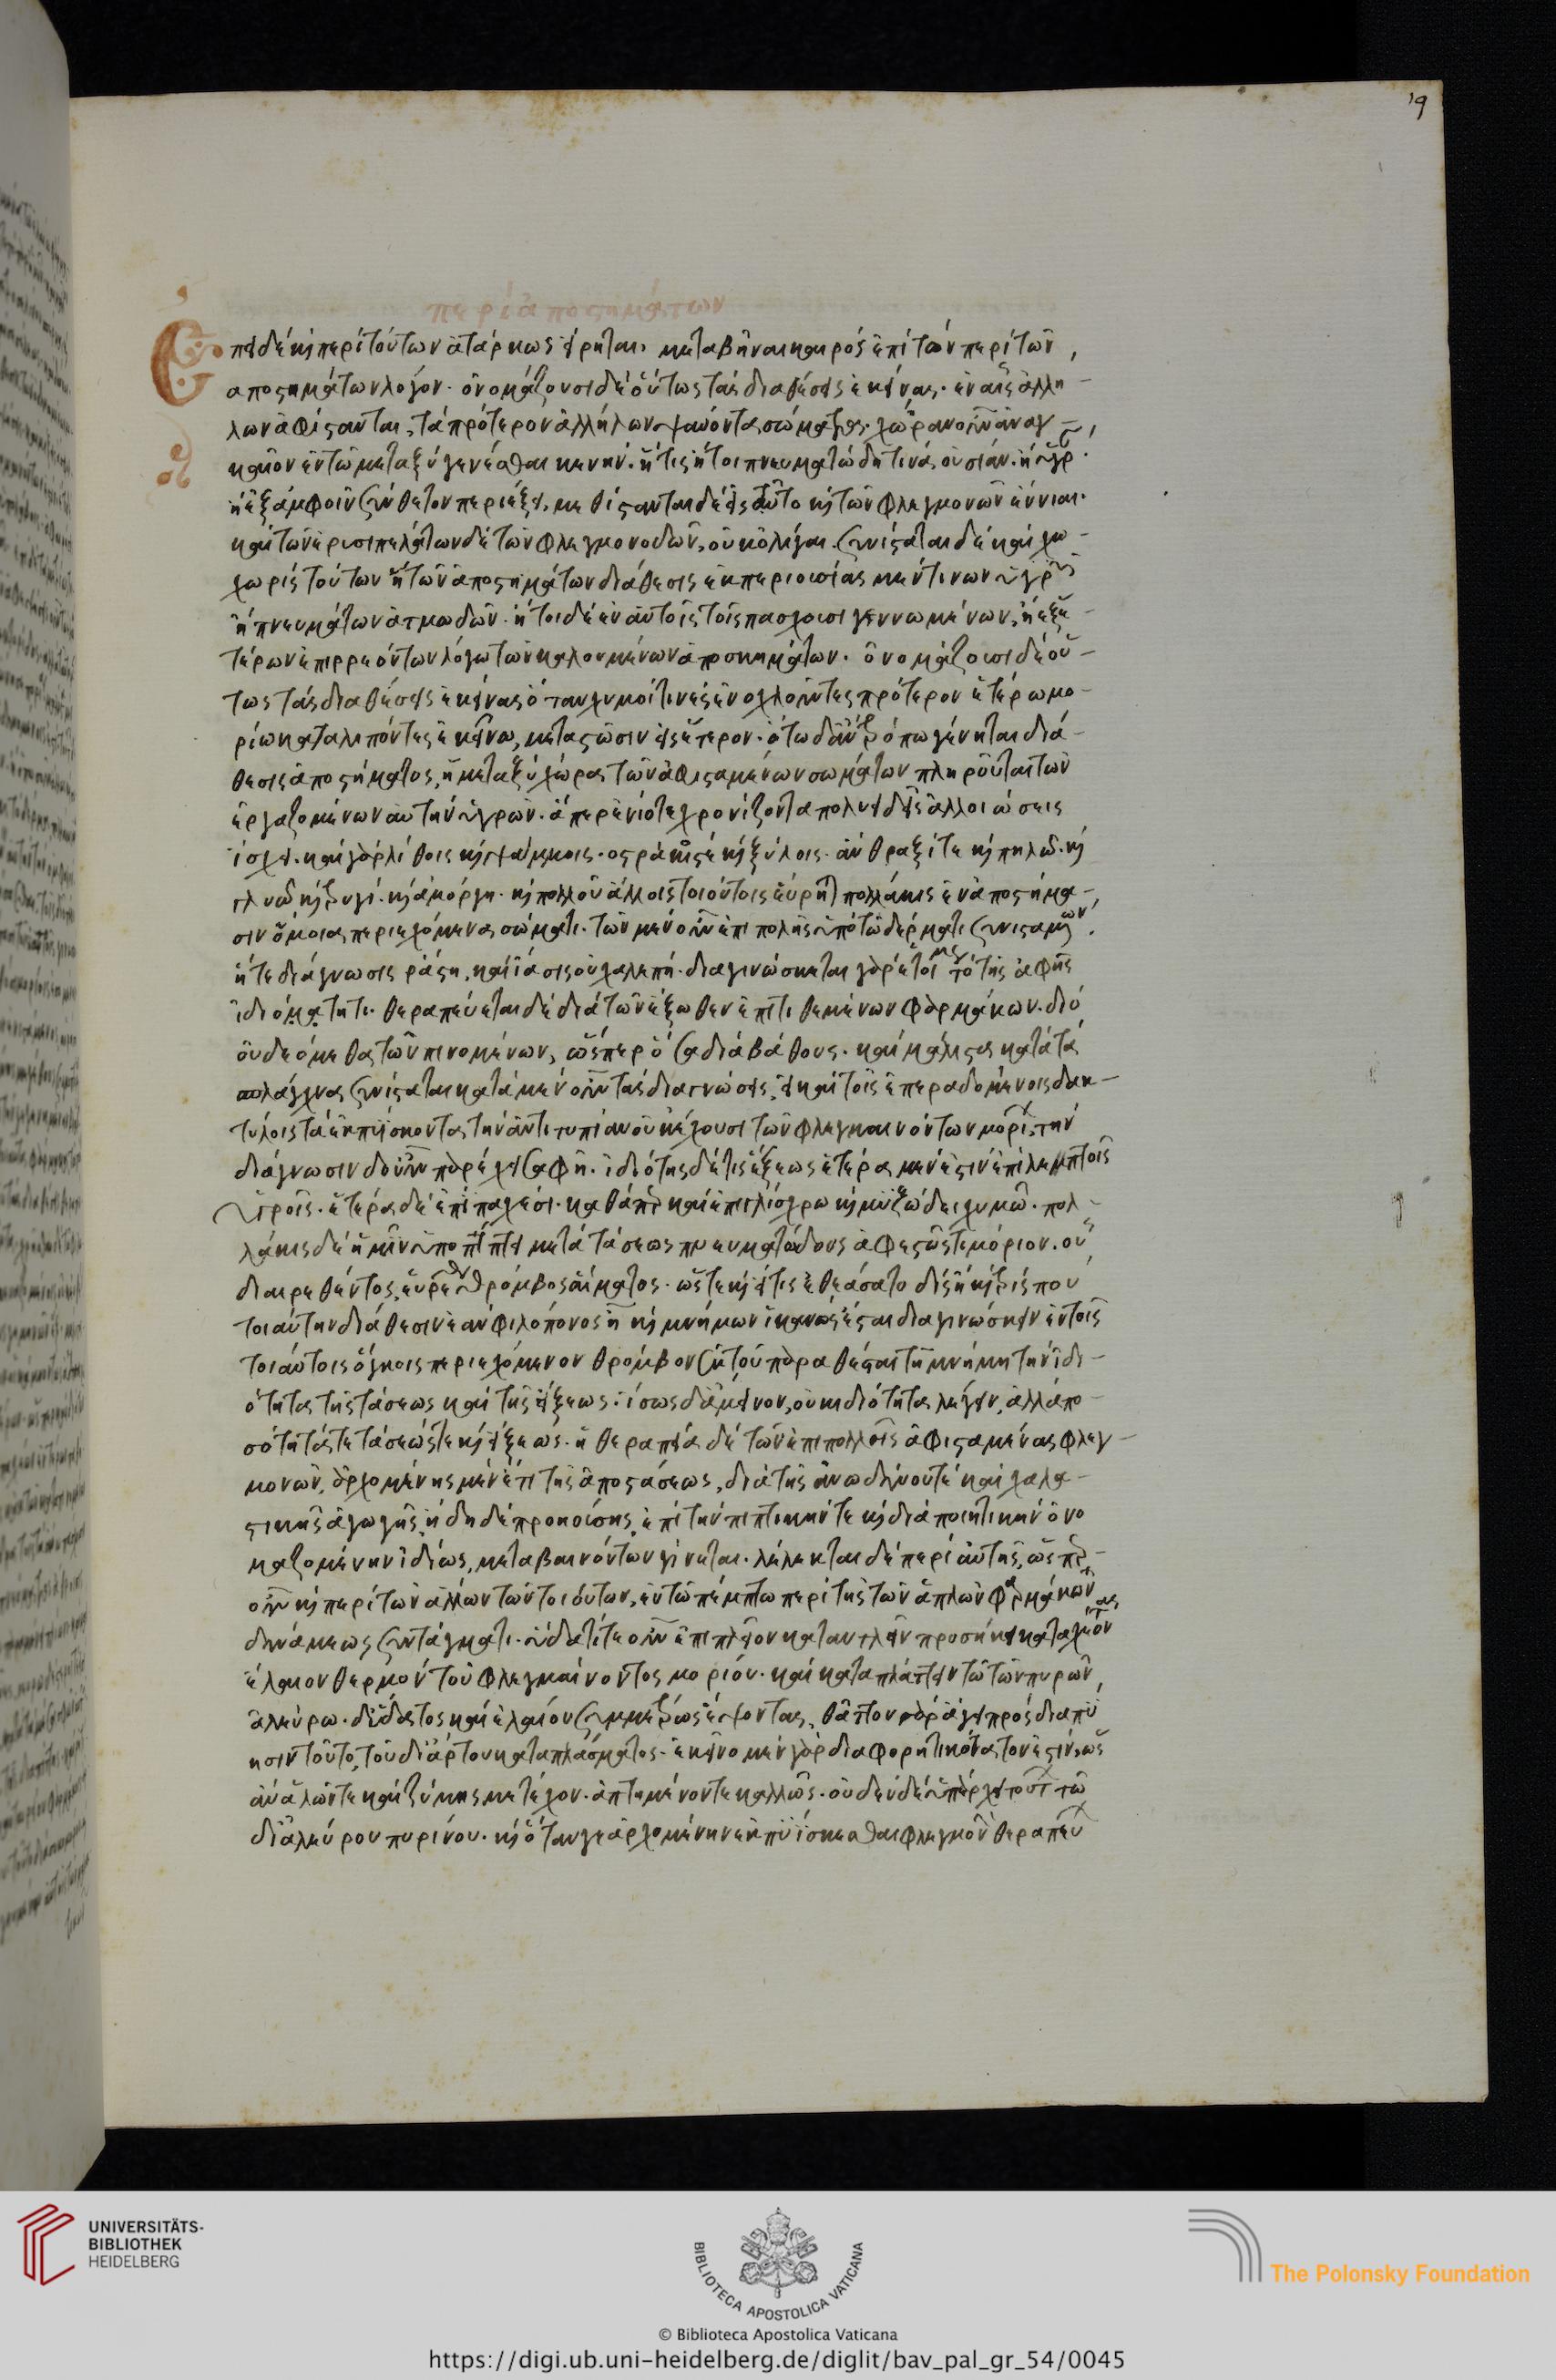 19
περὶ ἀποστημάτων
Ἐπεὶ δὲ καὶ περὶ τούτων αὐτάρκως εἴρηται, μεταβῆναι καιρὸς ἐπὶ τὸν περὶ τῶν
ἀποστημάτων λόγον. ὀνομάζουσι δὲ οὕτως τὰς διαθέσεις ἐκείνας. ἐν αἷς ἀλλή-
λων ἀφίσταται, τὰ πρότερον ἀλλήλων ψαύοντα σώματα. χώραν οὖν ἀναγ-
καῖον ἐν τῷ μεταξὺ γενέσθαι κενήν. ἥτις ἤτοι πνευματώδη τινὰ οὐσίαν. ἢ ὑγρ.
ἢ ἐξ ἀμφοῖν σύνθετον περιέξει. μεθίστανται δὲ εἰς αὐτὸ καὶ τῶν φλεγμονῶν ἔνιαι.
καὶ τῶν ἐρυσιπελάτων δὲ τῶν φλεγμονωδῶν, οὐκ ὀλίγαι. συνίσταται δὲ καὶ χω-
χωρὶς τούτων ἡ τῶν ἀποστημάτων διάθεσις ἐκ περιουσίας μέντινων ὑγρῶν
ἢ πνευμάτων ἀτμωδῶν. ἤτοι δὲ ἐν αὐτοῖς τοῖς πάσχουσι γεννωμένων, ἢ ἐξ ἑ-
τέρων ἐπιρρεόντων λόγῳ τῶν καλουμένων ἀποσκημάτων. ὀνομάζουσι δὲ οὕ-
τως τὰς διαθέσεις ἐκείνας ὅταν χυμοί τινες ἐνοχλοῦντες πρότερον ἑτέρῳ μο-
ρίῳ καταλιπόντες ἐκεῖνο, μεταστῶσιν εἰς ἕτερον. ὅτῳ δ' ἂν τρόπῳ γένηται διά-
θεσις ἀποστήματος, ἡ μεταξὺ χώρα τῶν ἀφισταμένων σωμάτων πληροῦται τῶν
ἐργαζομένων αὐτὴν ὑγρῶν. ἅπερ ἐνίοτε χρονίζοντα πολυειδεῖς ἀλλοιώσεις
ἴσχει. καὶ γὰρ λίθοις καὶ ψάμμοις. ὀστράκοις τε καὶ ξύλοις. ἄνθραξί τε καὶ πηλῷ. καὶ
γλυῷ καὶ τρυγί. καὶ ἀμόργῃ. καὶ πολλοῖς ἄλλοις τοιούτοις εὕρηται πολλάκις ἐν ἀποστήμα-
σιν ὅμοια περιεχόμενα σώματι. τῶν μὲν οὖν ἐπιπολῆς ὑπὸ τῷ δέρματι συνισταμένων
ἥ τε διάγνωσις ῥᾴστη, καὶ ἴασις οὐ χαλεπή. διαγινώσκεται γὰρ ἔτοιμε τὸ τῆς ἁφῆς
ἰδιόματητι. θεραπεύεται δὲ διὰ τῶν ἔξωθεν ἐπιτιθεμένων φαρμάκων. διὸ
οὐδεόμεθα τῶν πινομένων, ὥσπερ ὅσα διὰ βάθους. καὶ μάλιστα κατὰ τὰ
σπλάγχνα συνίσταται κατὰ μὲν οὖν τὰς διαγνώσεις, εἰ καὶ τοῖς ἐπεραδομένοις δακ-
τύλοις τὰ ἐκπυΐσκοντα τὴν ἀντιτυπίαν οὐκ ἔχουσι τῶν φλεγμαινόντων μορίων, τὴν
διάγνωσιν δ' οὖν παρέχει σαφῆ. ἰδιότης δέ τις εἴξεως ἑτέρα μέν ἐστιν ἐπὶ λεπτοῖς
ὑγροῖς. ἑτέρα δὲ ἐπὶ παχέσι. καθάπερ καὶ ἐπὶ γλίσχρῳ καὶ μυξώδει χυμῷ. πολ-
λάκις δὲ ἡμῖν ὑποπίπτει μετὰ τάσεως πνευματώδους ἀφεστώς τε μόριον. οὗ
διαιρεθέντος, εὑρέθη θρόμβος αἵματος. ὥστε καὶ εἴ τις ἐθεάσατο δὶς ἢ καὶ τρίς που
τοιαύτην διάθεσιν ἐὰν φιλόπονος ᾖ καὶ μνήμων ἱκανὸς ἔσται διαγινώσκειν ἐν τοῖς
τοιαύτοις ὄγκοις περιεχόμενον θρόμβον ἐκ τοῦ παραθέσται τῇ μνήμῃ τὴν ἰδι-
ότητα τῆς τάσεως καὶ τῆς εἴξεως. ἴσως δ' ἄμεινον, οὐκ ἰδιότητα λέγειν, ἀλλὰ πο-
σότητά τε τάσεώς τε καὶ εἴξεως. ἡ θεραπεία δὲ τῶν ἐπὶ πολλοῖς ἀφισταμένας φλεγ-
μονῶν, ἀρχομένης μὲν ἔτι τῆς ἀποστάσεως, διὰ τῆς ἀνωδύνου τε καὶ χαλα-
στικῆς ἀγωγῆς, ἤδη δὲ προηκούσης, ἐπὶ τὴν πεπτικήν τε καὶ διαποιητικὴν ὀνο
μαζομένην ἰδίως, μεταβαινόντων γίνεται. λέλεκται δὲ περὶ αὐτῆς, ὥσπερ
οὖν καὶ περὶ τῶν ἄλλων τῶν τοιούτων, ἐν τῷ πέμπτῳ περὶ τῆς τῶν ἁπλῶν φαρμάκων
δυνάμεως συντάγματι. ὕδατί τε οὖν ἐπιπλεῖον καταντλεῖν προσήκει καταχέοντας
ἔλαιον θερμὸν τοῦ φλεγμαίνοντος μορίου. καὶ καταπλάττειν τῷ τῶν πυρῶν
ἀλεύρῳ. δι' ὕδατος καὶ ἐλαίου συμμέτρως ἕψοντας, θᾶττον γὰρ ἄγει πρὸς διαπύ
ησιν τοῦτο, τοῦ δι' ἄρτου καταπλάσματος. ἐκεῖνο μὲν γὰρ διαφορητικώτατόν ἐστιν, ὡς
ἂν ἁλῶν τε καὶ ζύμης μετέχον. ὀπτημένον τε καλλῶς. οὐδὲν δὲ ὑπάρχει τούτων τῷ
δι' ἀλεύρου πυρίνου. καὶ ὅταν γε ἀρχομένην ἐκπυΐσκεσθαι φλεγμονὴν θεραπεύ
UNIVERSITÄTS-
BIBLIOTHEK
HEIDELBERG
BIBLIOTECA APOSTOLICA VATICANA
The Polonsky Foundation
© Biblioteca Apostolica Vaticana
https://digi.ub.uni-heidelberg.de/diglit/bav_pal_gr_54/0045